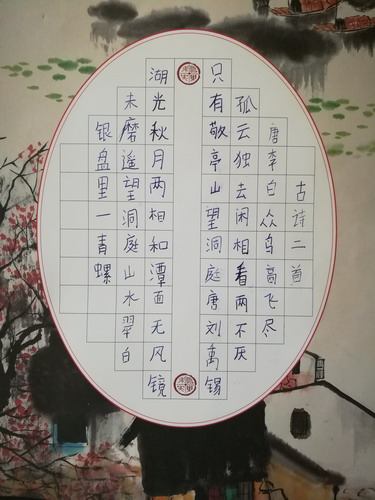 古诗二首
唐李白众鸟高飞尽
孤云独去闲相看两不厌
只有敬亭山望洞庭唐刘禹锡
湖光秋月两相和潭面无风镜
未磨遥望洞庭山水翠白
银盘里一青螺